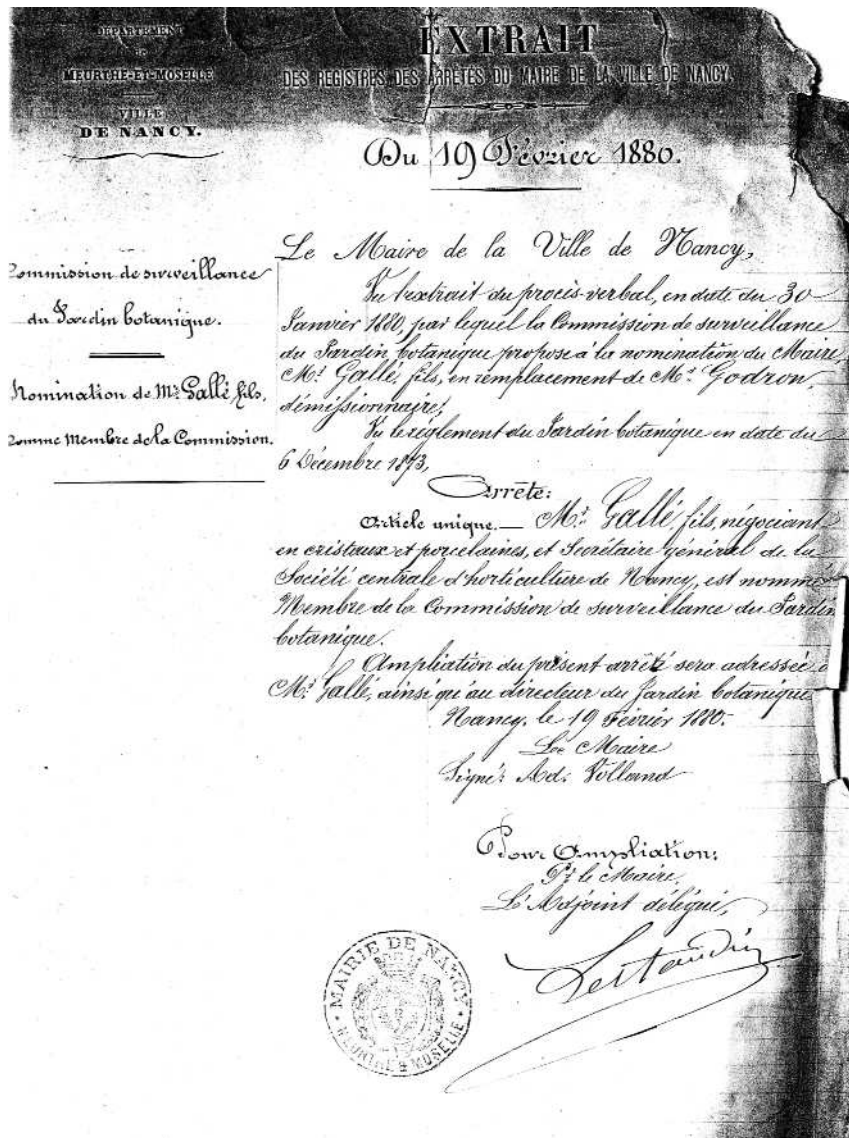 DÉPARTEMENT
DE
MEURTHE-ET-MOSELLE
VILLE
DE NANCY.
EXTRAIT
DES REGISTRES DES ARRÊTÉS DU MAIRE DE LA VILLE DE NANCY
Du 19 Février 1880.
Commission de surveillance
du Jardin botanique.
Nomination de Mr. Gallé fils,
comme Membre de la Commission.
Le Maire de la Ville de Nancy,
Vu l'extrait du procès-verbal, en date du 30
Janvier 1880, par lequel la Commission de surveillance
du Jardin botanique propose à la nomination du Maire
Mr. Gallé, fils, en remplacement de Mr. Godron,
démissionnaire;
Vu le règlement du Jardin botanique en date du
6 Décembre 1873,
Arrête:
Article unique. — Mr. Gallé, fils, négociant
en cristaux et porcelaines, et Secrétaire général de la
Société centrale d'horticulture de Nancy, est nommé
Membre de la Commission de surveillance du Jardin
botanique.
Ampliation du présent arrêté sera adressée à
Mr. Gallé, ainsi qu'au directeur du Jardin botanique
Nancy, le 19 Février 1880.
Le Maire
Signé: Ad. Volland
Pour Ampliation:
Pr. le Maire,
L'Adjoint délégué,
MAIRIE DE NANCY
MEURTHE & MOSELLE